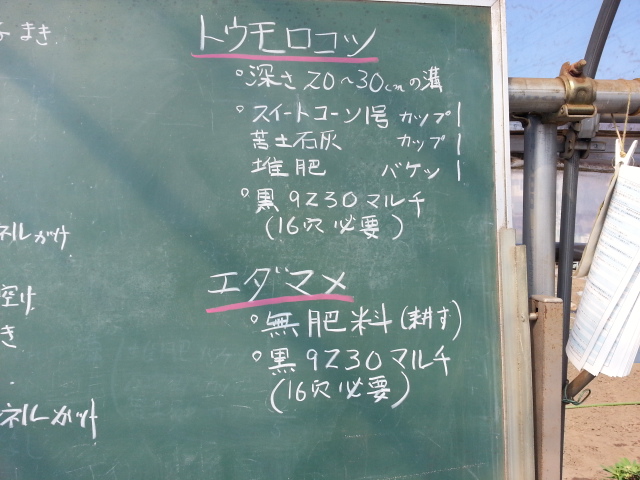 まき.
トウモロコシ
○深さ20〜30cmの溝
○スイートコーン1号 カップ1
苦土石灰 カップ1
堆肥 バケツ1
○黒9230マルチ
(16穴必要)
ネルがけ
空け
き
.
ネルがけ
エダマメ
○無肥料(耕す)
○黒9230マルチ
(16穴必要)